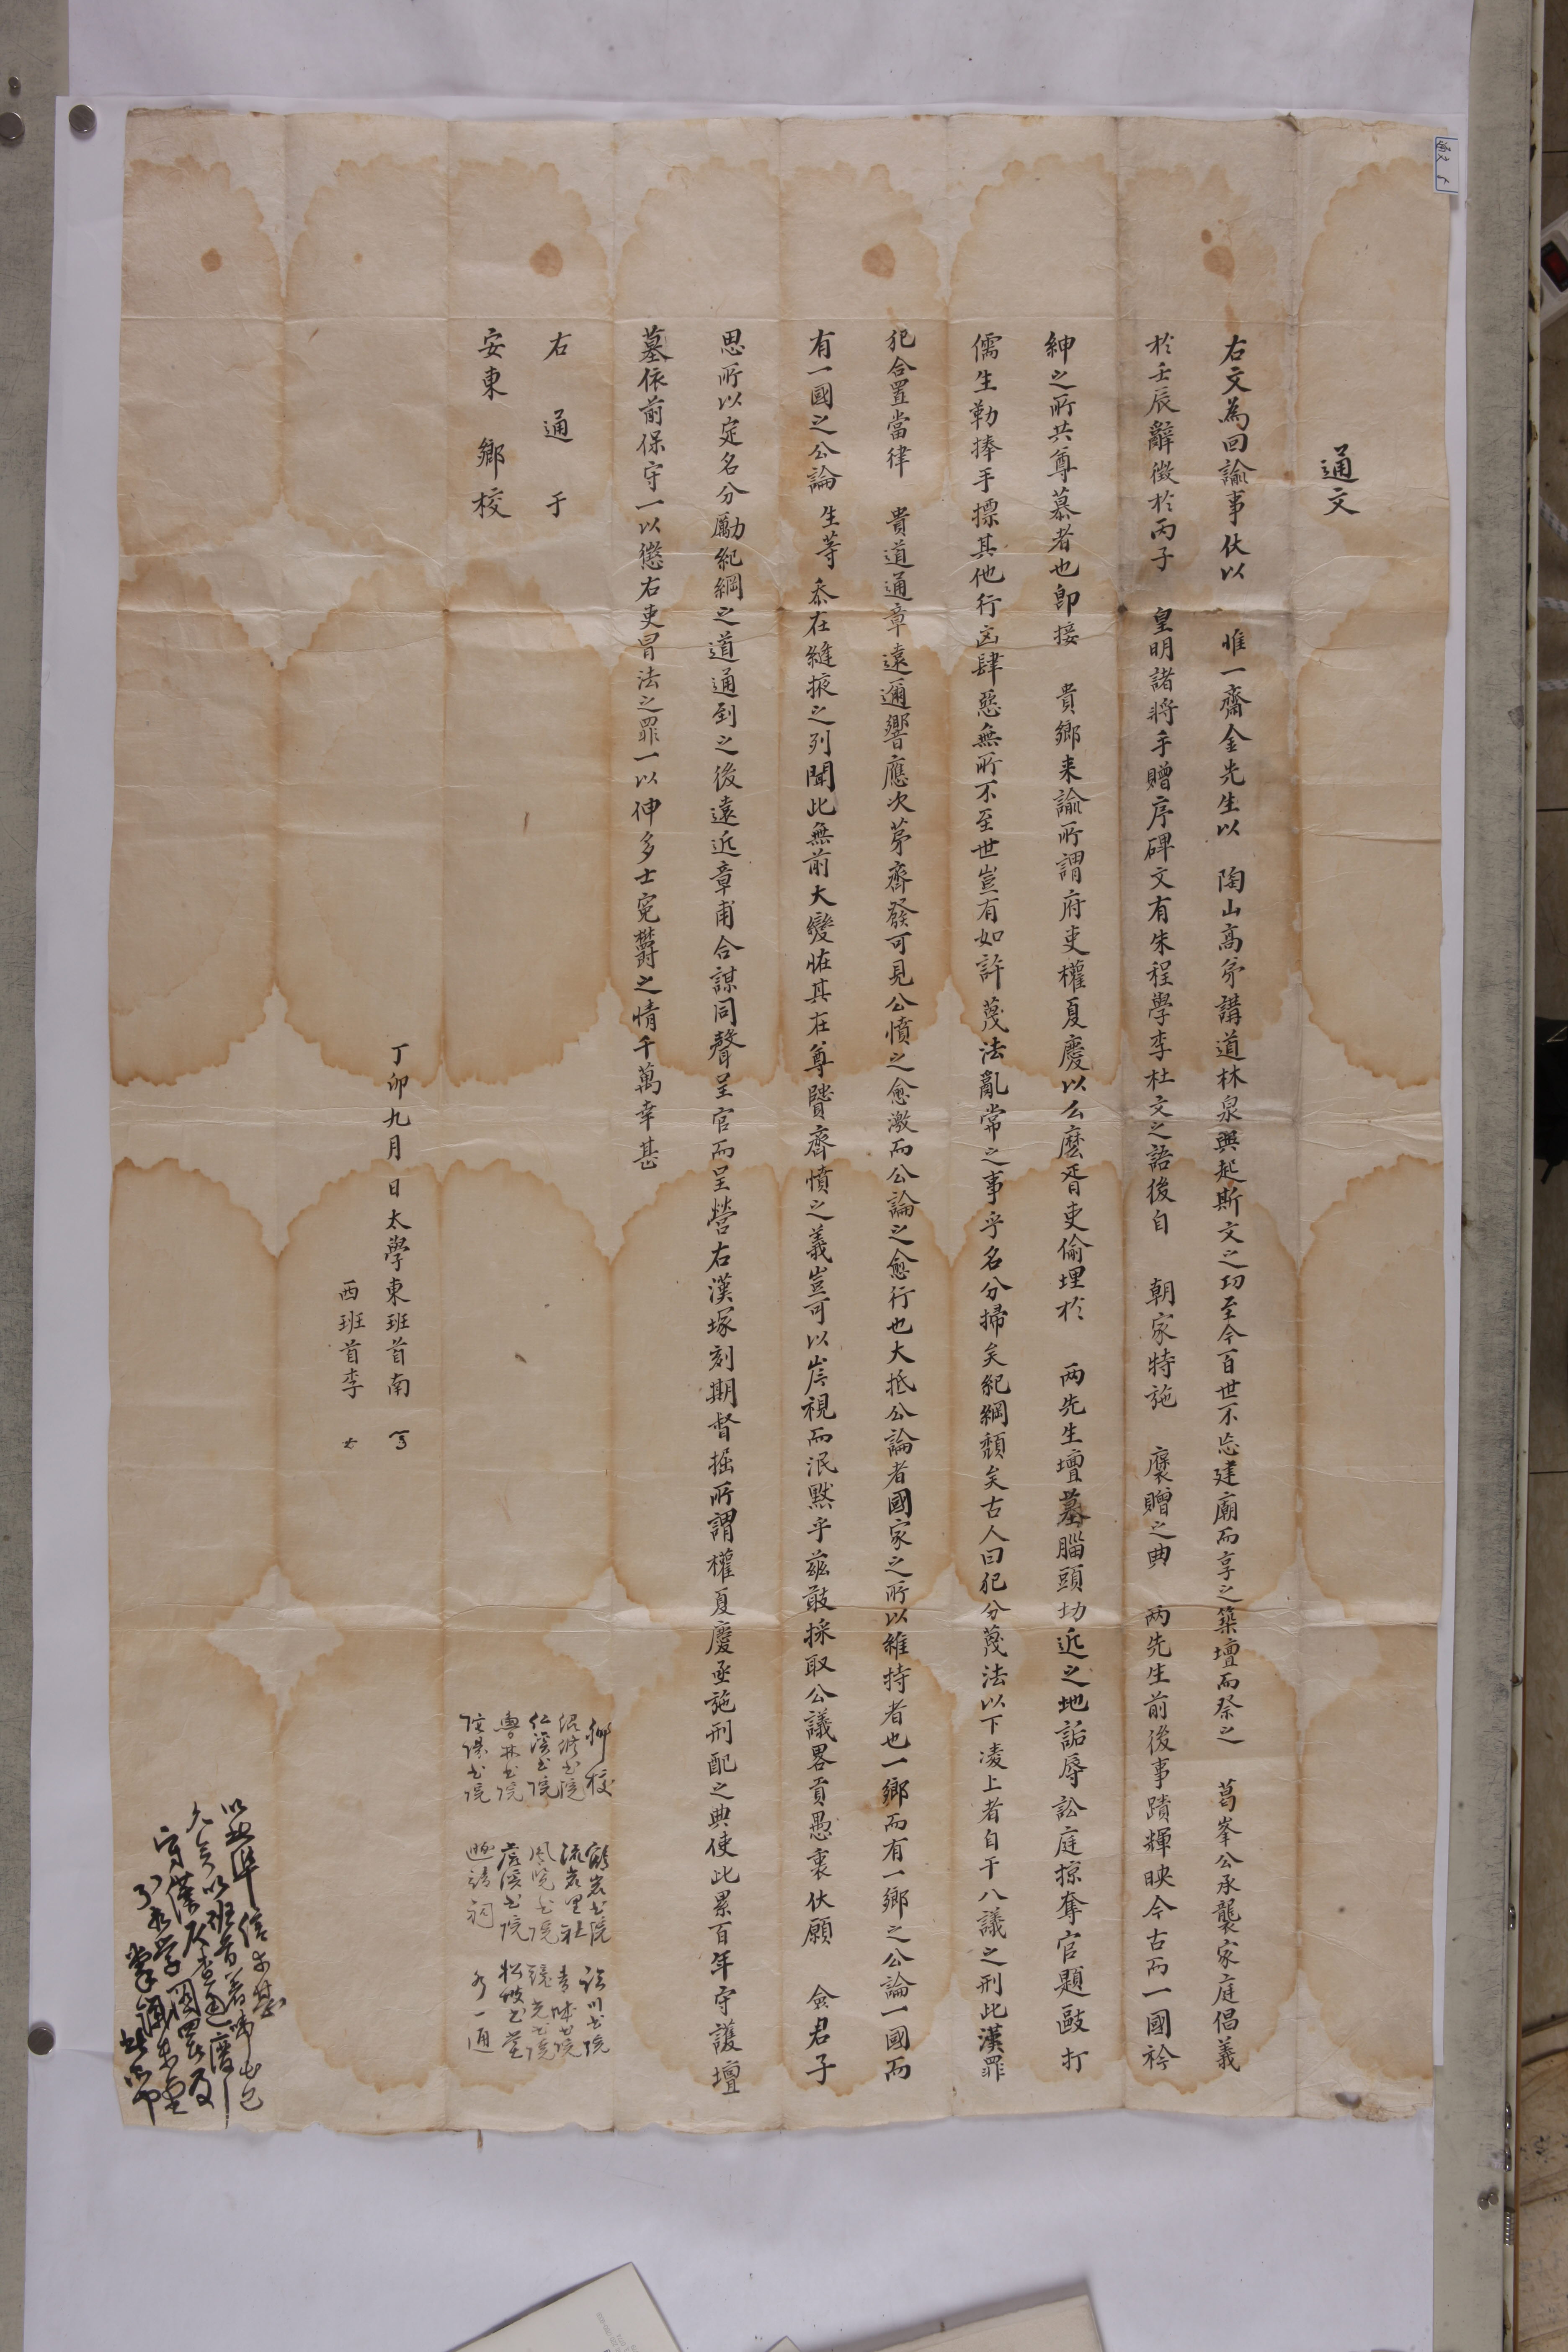 通文
右文為回諭事伏以 惟一齋金先生以 陶山高弟講道林泉興起斯文之功至今百世不忘建廟而享之築壇而祭之 葛峯公承襲家庭倡義
於壬辰辭徵於丙子 皇明諸將手贈序碑文有朱程學李杜文之語後自 朝家特施 褒贈之典 兩先生前後事蹟輝映今古而一國衿
紳之所共尊慕者也卽接 貴鄉来諭所謂府吏權夏慶以么麽胥吏偷埋於 兩先生壇墓腦頭切近之地詬辱訟庭掠奪官題敺打
儒生勒捧手摽其他行凶肆惡無所不至世豈有如許蔑法亂常之事乎名分掃矣紀綱頹矣古人曰犯分蔑法以下凌上者自干八議之刑此漢罪
犯合置當律 貴道通章遠邇響應次第齊發可見公憤之愈激而公論之愈行也大抵公論者國家之所以維持者也一鄉而有一鄉之公論一國而
有一國之公論 生等 忝在縫掖之列聞此無前大變恠其在尊賢齊憤之義豈可以岸視而泯默乎玆敢採取公議畧貢愚衷伏願 僉君子
思所以定名分勵紀綱之道通到之後遠近章甫合謀同聲呈官而呈營右漢塚刻期督掘所謂權夏慶亟施刑配之典使此累百年守護壇
墓依前保守一以懲右吏冒法之罪一以伸多士寃欝之情千萬幸甚
右通于
安東 鄉校
丁卯九月 日太學東班首南
西班首李
鄉校
仁溪書院
魯林書院
虎溪書院
鏡光書院
青城書院
各一通